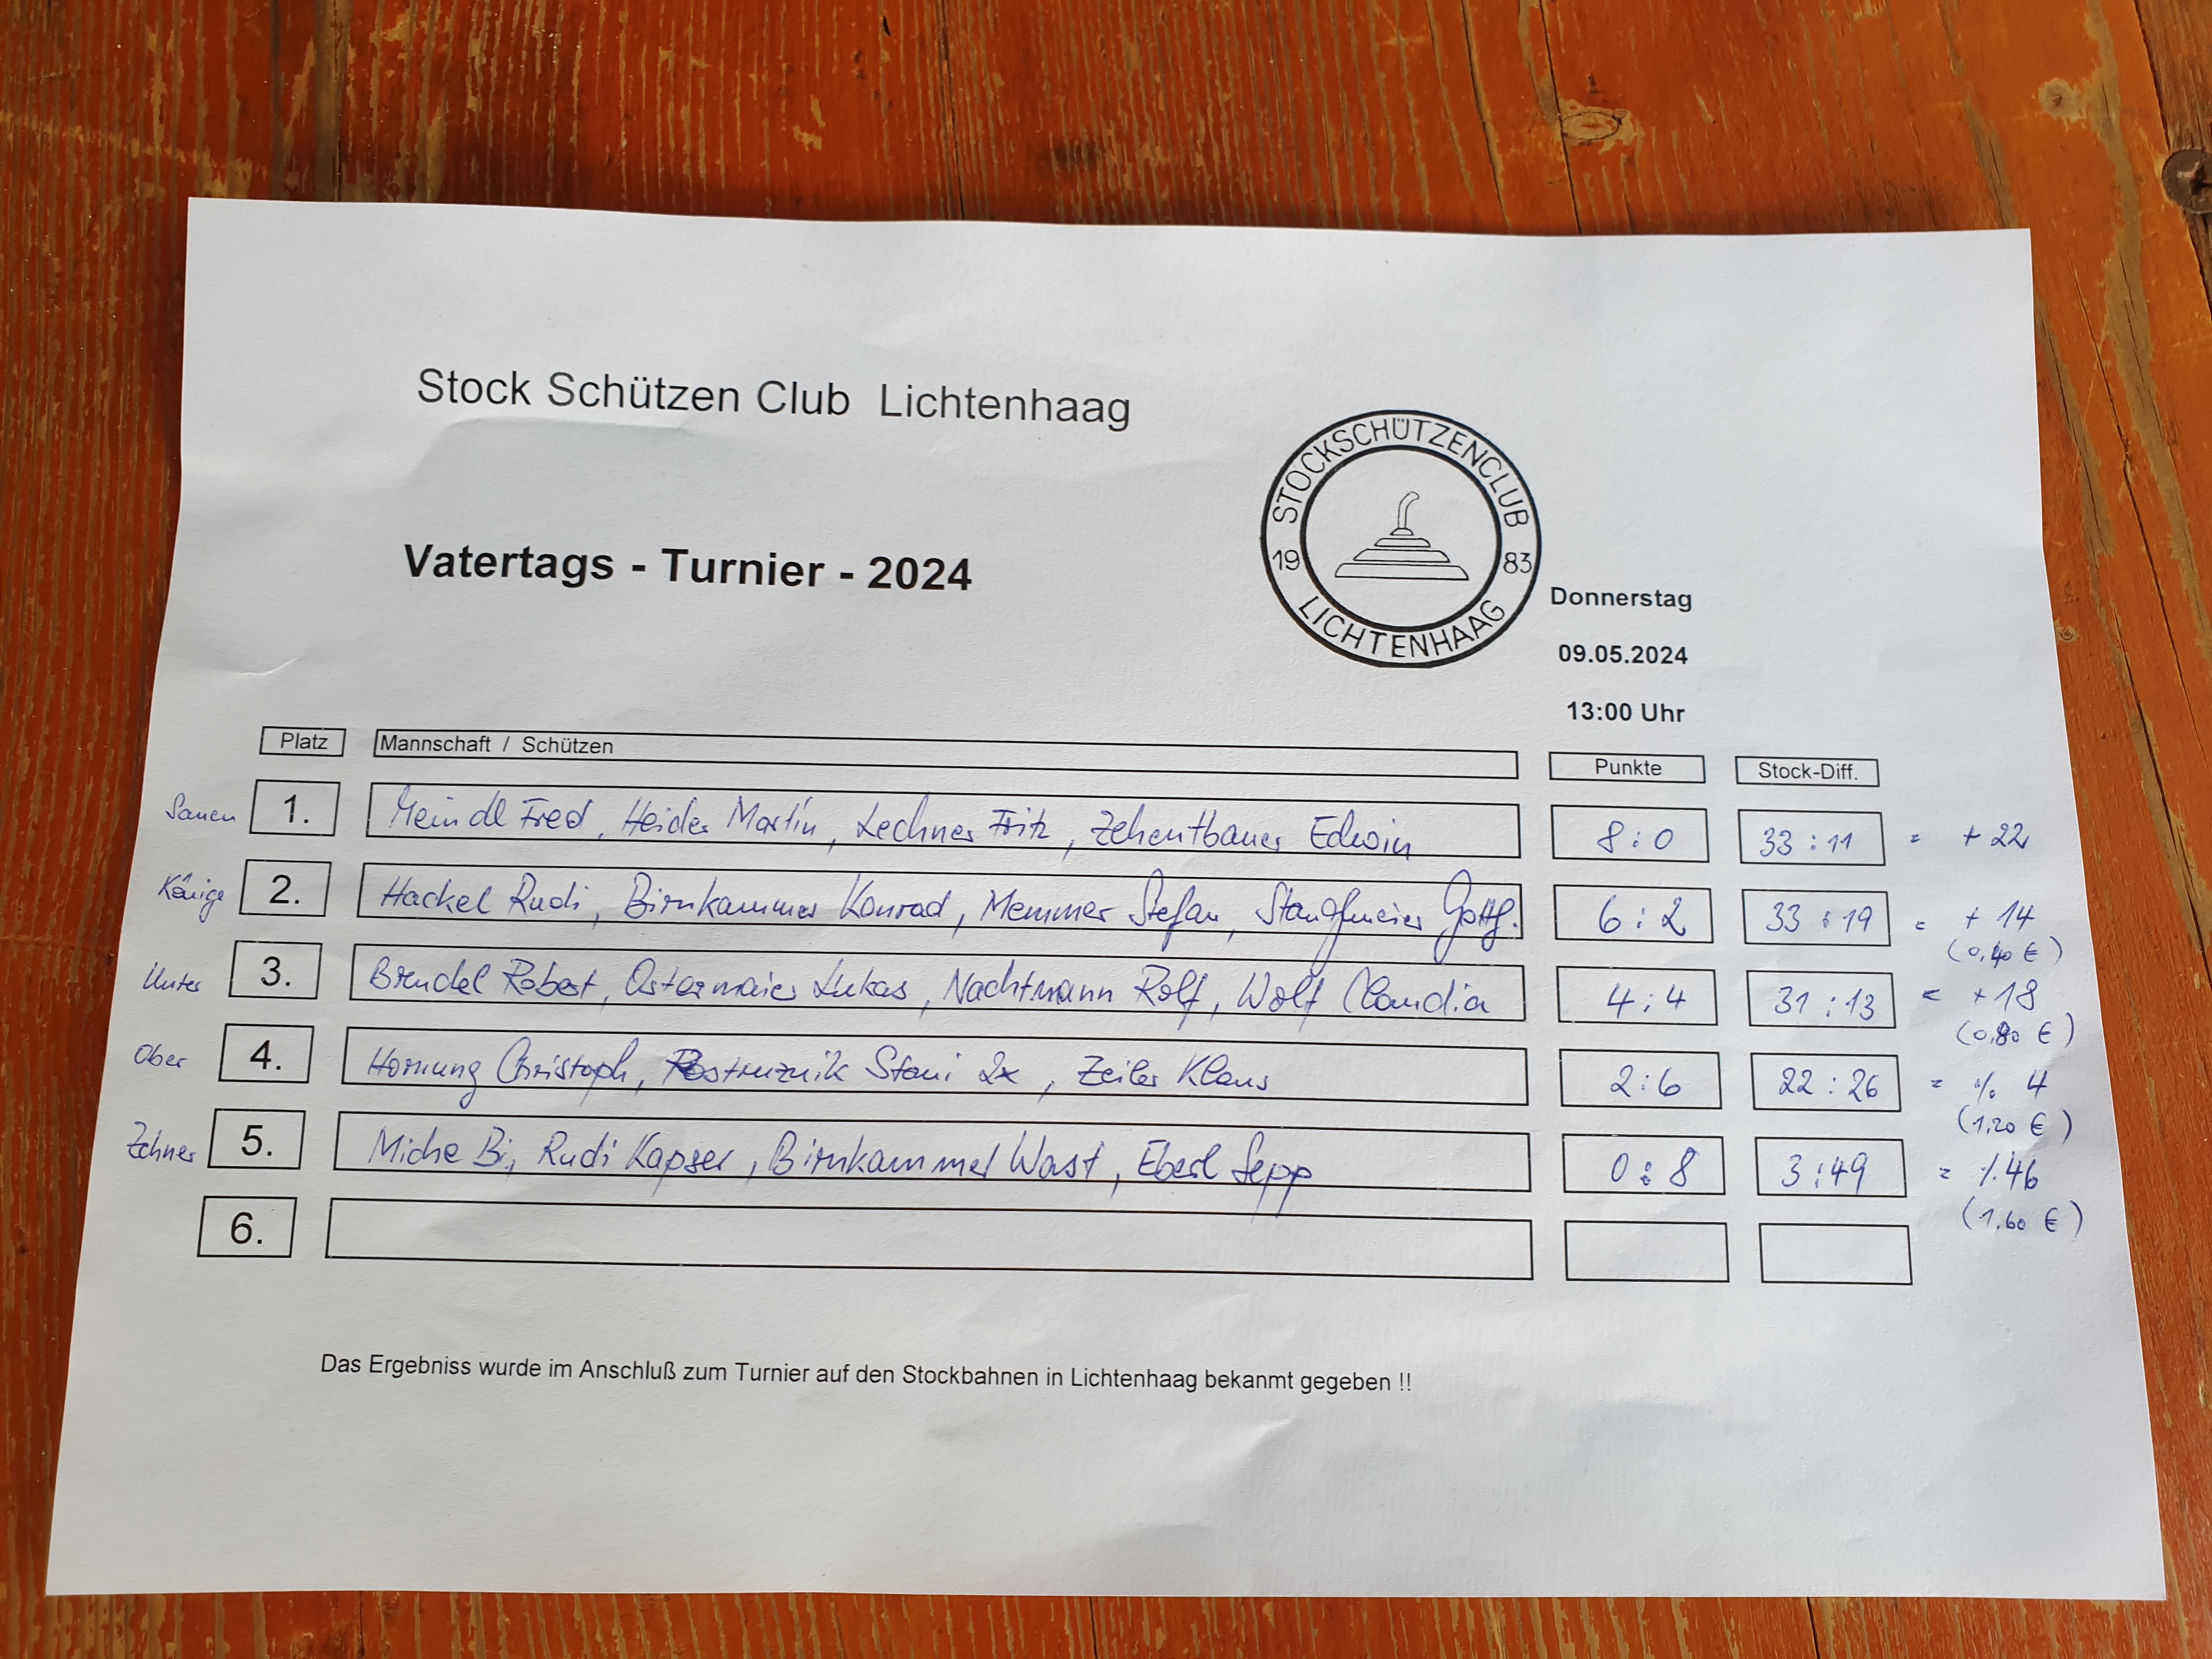 Stock Schützen Club Lichtenhaag
STOCKSCHÜTZENCLUB
19 83
LICHTENHAAG
Vatertags - Turnier - 2024
Donnerstag
09.05.2024
13:00 Uhr
Platz Mannschaft / Schützen Punkte Stock-Diff.
Sauen 1. Meindl Fred, Heider Martin, Lechner Fritz, Zehentbauer Edwin 8:0 33:11 = + 22
Könige 2. Hackel Rudi, Birnkammer Konrad, Memmer Stefan, Stanglmeier Gottf. 6:2 33:19 = + 14
(0,40 €)
Unter 3. Brendel Robert, Ostermaier Lukas, Nachtmann Rolf, Wolf Claudia 4:4 31:13 = +18
(0,80 €)
Ober 4. Hornung Christoph, Postruznik Stani 2x, Zeiler Klaus 2:6 22:26 = ·/. 4
(1,20 €)
Zehner 5. Miche Bi, Rudi Kapser, Birnkammer Wast, Eberl Sepp 0:8 3:49 = ·/. 46
(1,60 €)
6.
Das Ergebniss wurde im Anschluß zum Turnier auf den Stockbahnen in Lichtenhaag bekanmt gegeben !!